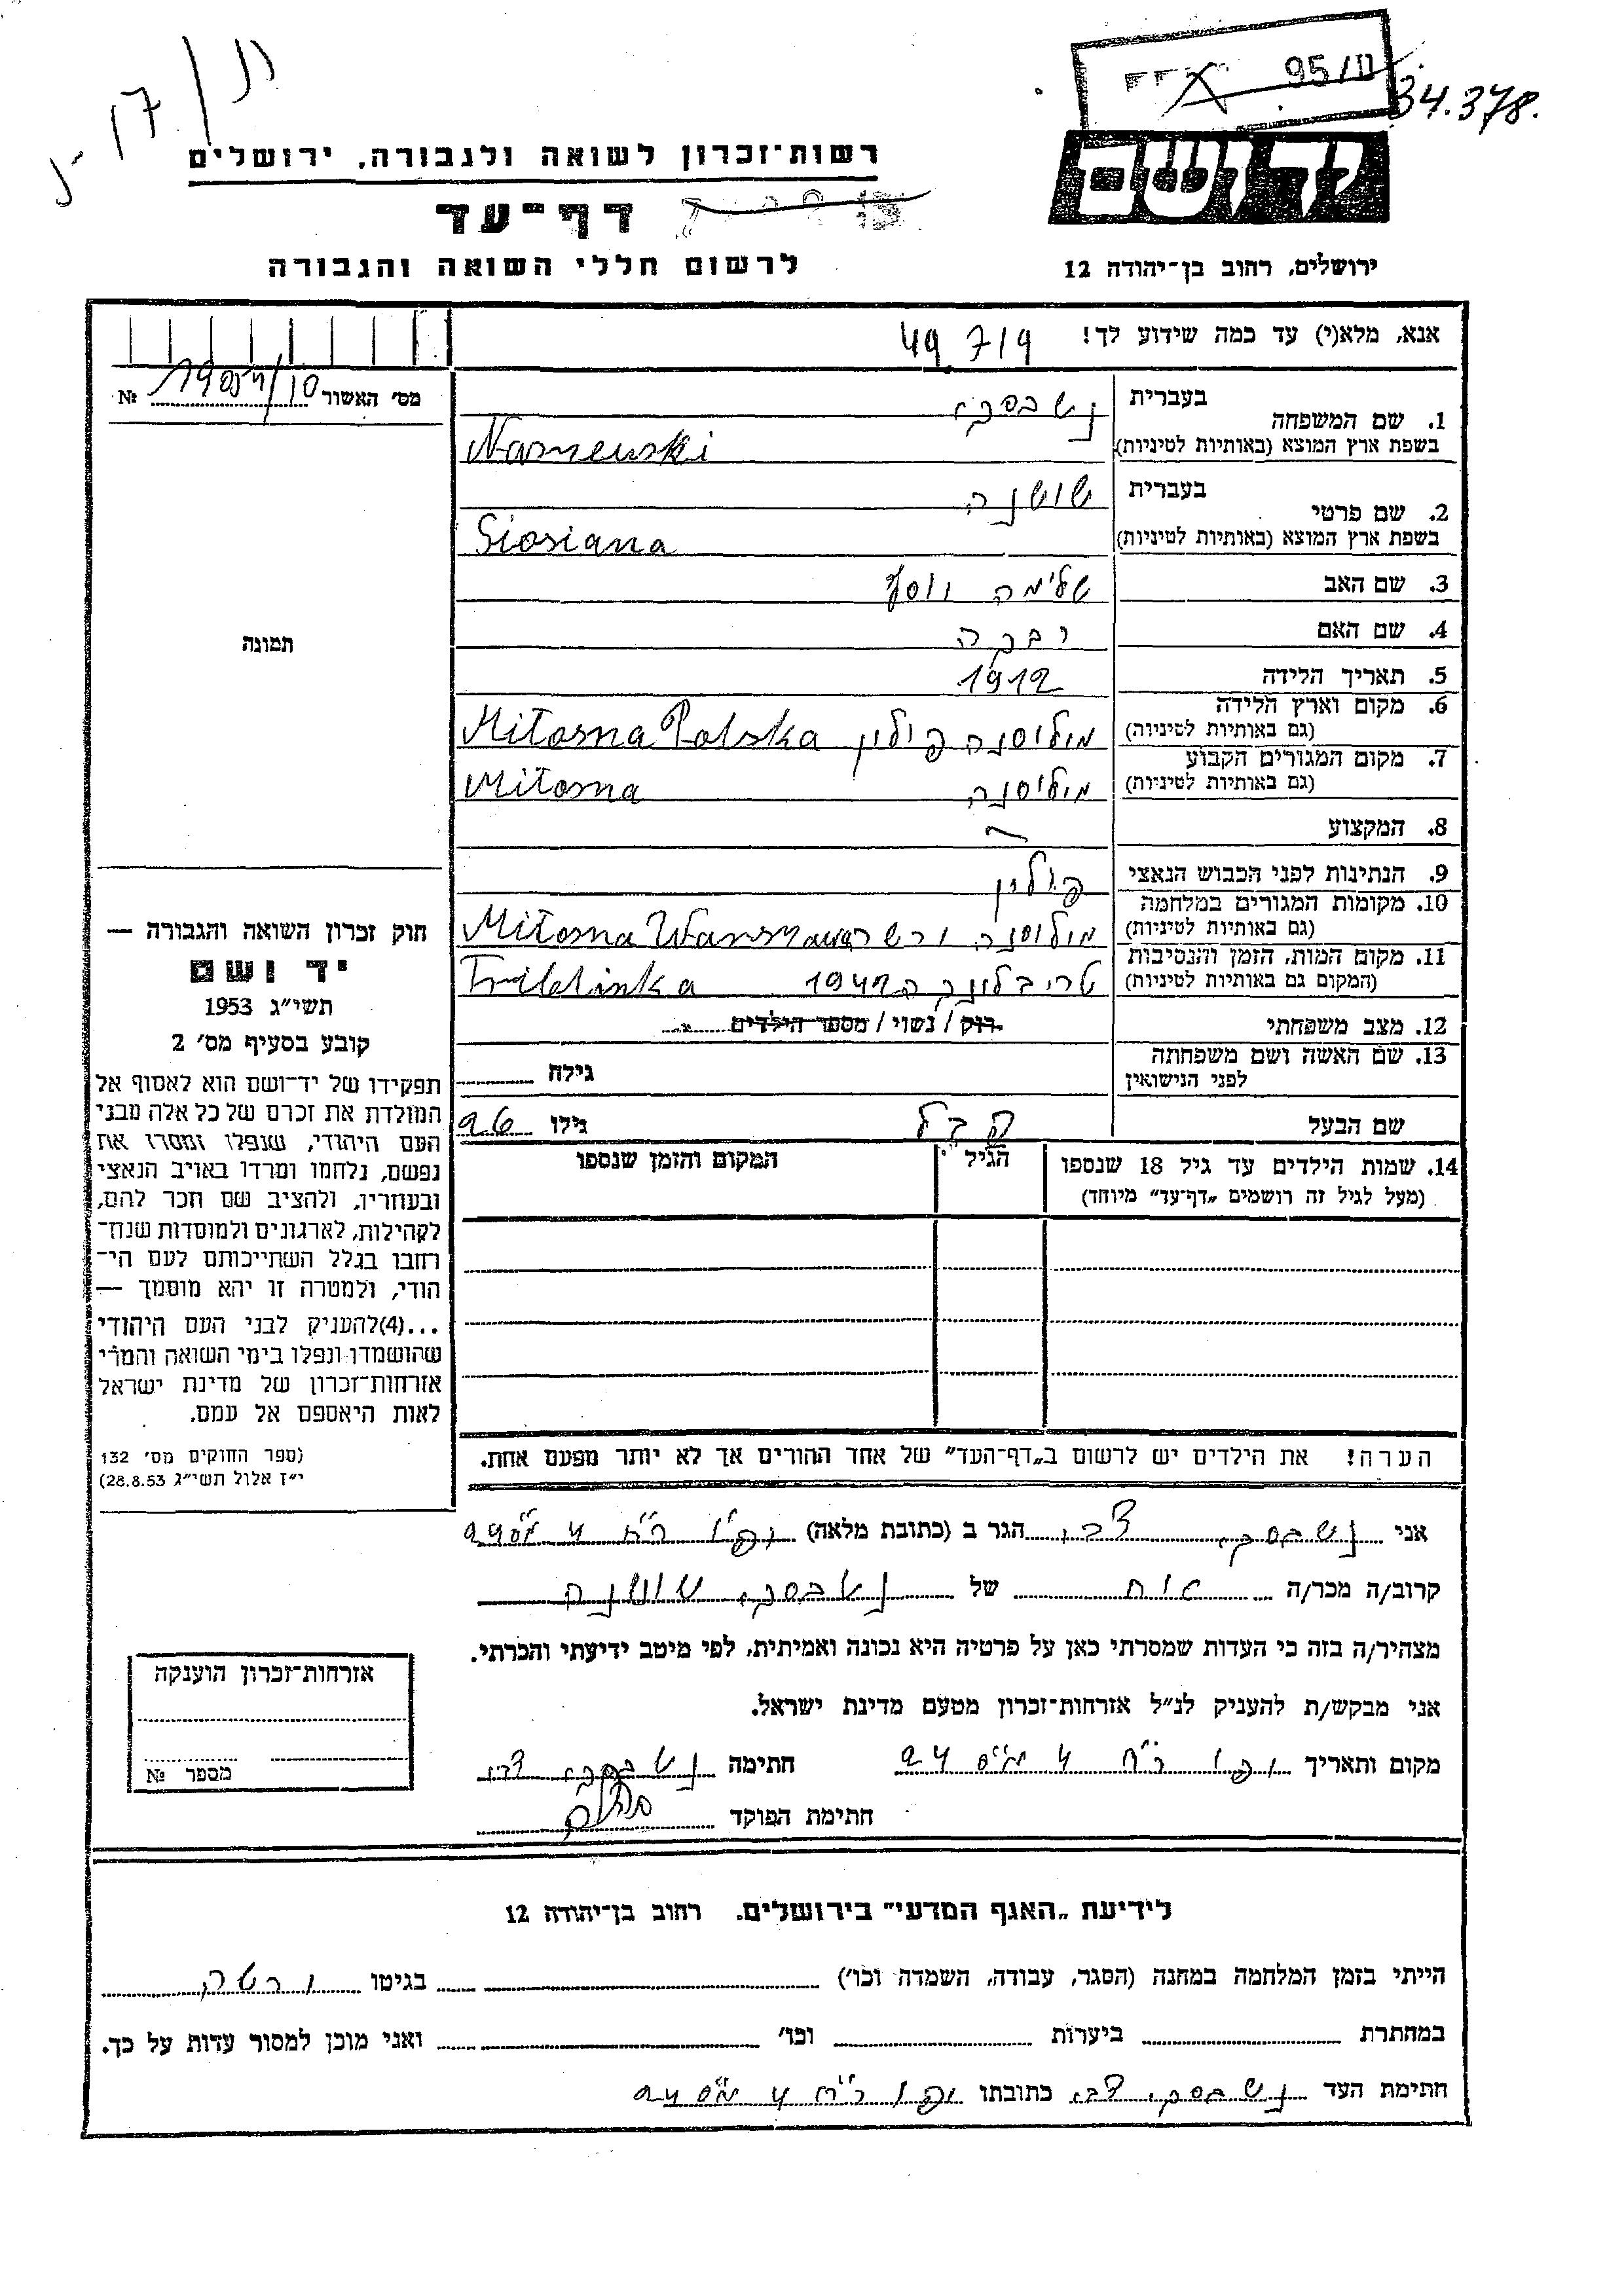 95/II
34.378.
ידושם
רשות־זכרון לשואה ולגבורה, ירושלים
דף־עד
לרשום חללי השואה והגבורה
ירושלים, רחוב בן־יהודה 12
אנא, מלא(י) עד כמה שידוע לך! 49 719
מס' האשור №
1. שם המשפחה
בעברית
בשפת ארץ המוצא (באותיות לטיניות)
2. שם פרטי
בעברית שושנה
בשפת ארץ המוצא (באותיות לטיניות) Siosiana
3. שם האב
4. שם האם רבקה
5. תאריך הלידה 1912
6. מקום וארץ הלידה
(גם באותיות לטיניות) מילוסנה פולין Miłosna Polska
7. מקום המגורים הקבוע
(גם באותיות לטיניות) מילוסנה Miłosna
8. המקצוע
9. הנתינות לפני הכבוש הנאצי פולין
10. מקומות המגורים במלחמה
(גם באותיות לטיניות) מילוסנה ורשה Miłosna Warszawa
11. מקום המות, הזמן והנסיבות
(המקום גם באותיות לטיניות) טריבלינקה 1942 Triblinka
12. מצב משפחתי רוק / נשוי / מספר הילדים
13. שם האשה ושם משפחתה
לפני הנישואין גילה
שם הבעל גילו
14. שמות הילדים עד גיל 18 שנספו
(מעל לגיל זה רושמים „דף־עד" מיוחד)
הגיל
המקום והזמן שנספו
הערה! את הילדים יש לרשום ב„דף־העד" של אחד ההורים אך לא יותר מפעם אחת.
תמונה
חוק זכרון השואה והגבורה —
יד ושם
תשי"ג 1953
קובע בסעיף מס' 2
תפקידו של יד־ושם הוא לאסוף אל
המולדת את זכרם של כל אלה מבני
העם היהודי, שנפלו ומסרו את
נפשם, נלחמו ומרדו באויב הנאצי
ובעוזריו, ולהציב שם וזכר להם,
לקהילות, לארגונים ולמוסדות שנח־
רחבו בגלל השתייכותם לעם הי־
הודי, ולמטרה זו יהא מוסמך —
...(4)להעניק לבני העם היהודי
שהושמדו ונפלו בימי השואה והמרי
אזרחות־זכרון של מדינת ישראל
לאות היאספם אל עמם.
(ספר החוקים מס' 132
י"ז אלול תשי"ג 28.8.53)
אני הגר ב (כתובת מלאה)
קרוב/ה מכר/ה של שושנה
מצהיר/ה בזה כי העדות שמסרתי כאן על פרטיה היא נכונה ואמיתית, לפי מיטב ידיעתי והכרתי.
אני מבקש/ת להעניק לנ"ל אזרחות־זכרון מטעם מדינת ישראל.
מקום ותאריך חתימה
חתימת הפוקד
אזרחות־זכרון הוענקה
מספר №
לידיעת „האגף המדעי" בירושלים, רחוב בן־יהודה 12
הייתי בזמן המלחמה במחנה (הסגר, עבודה, השמדה וכו') בגיטו ורשה
במחתרת ביערות וכו' ואני מוכן למסור עדות על כך.
חתימת העד כתובתו